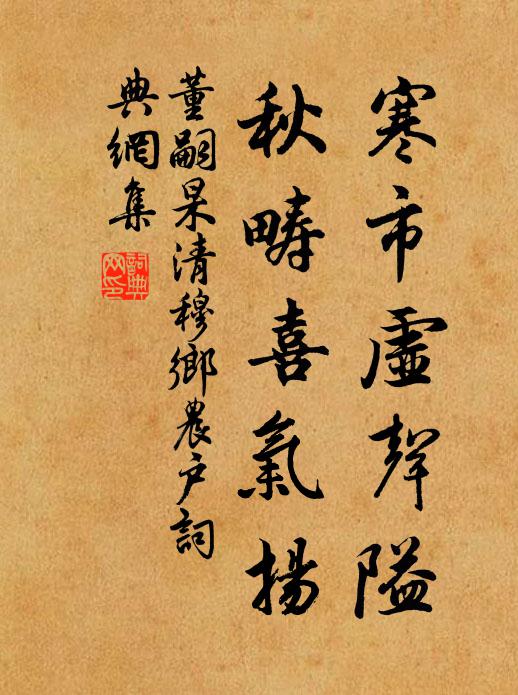 寒市虛聲隘
秋疇喜氣揚
董嗣杲清穆鄉農戶詞
典網集
詞典
网印